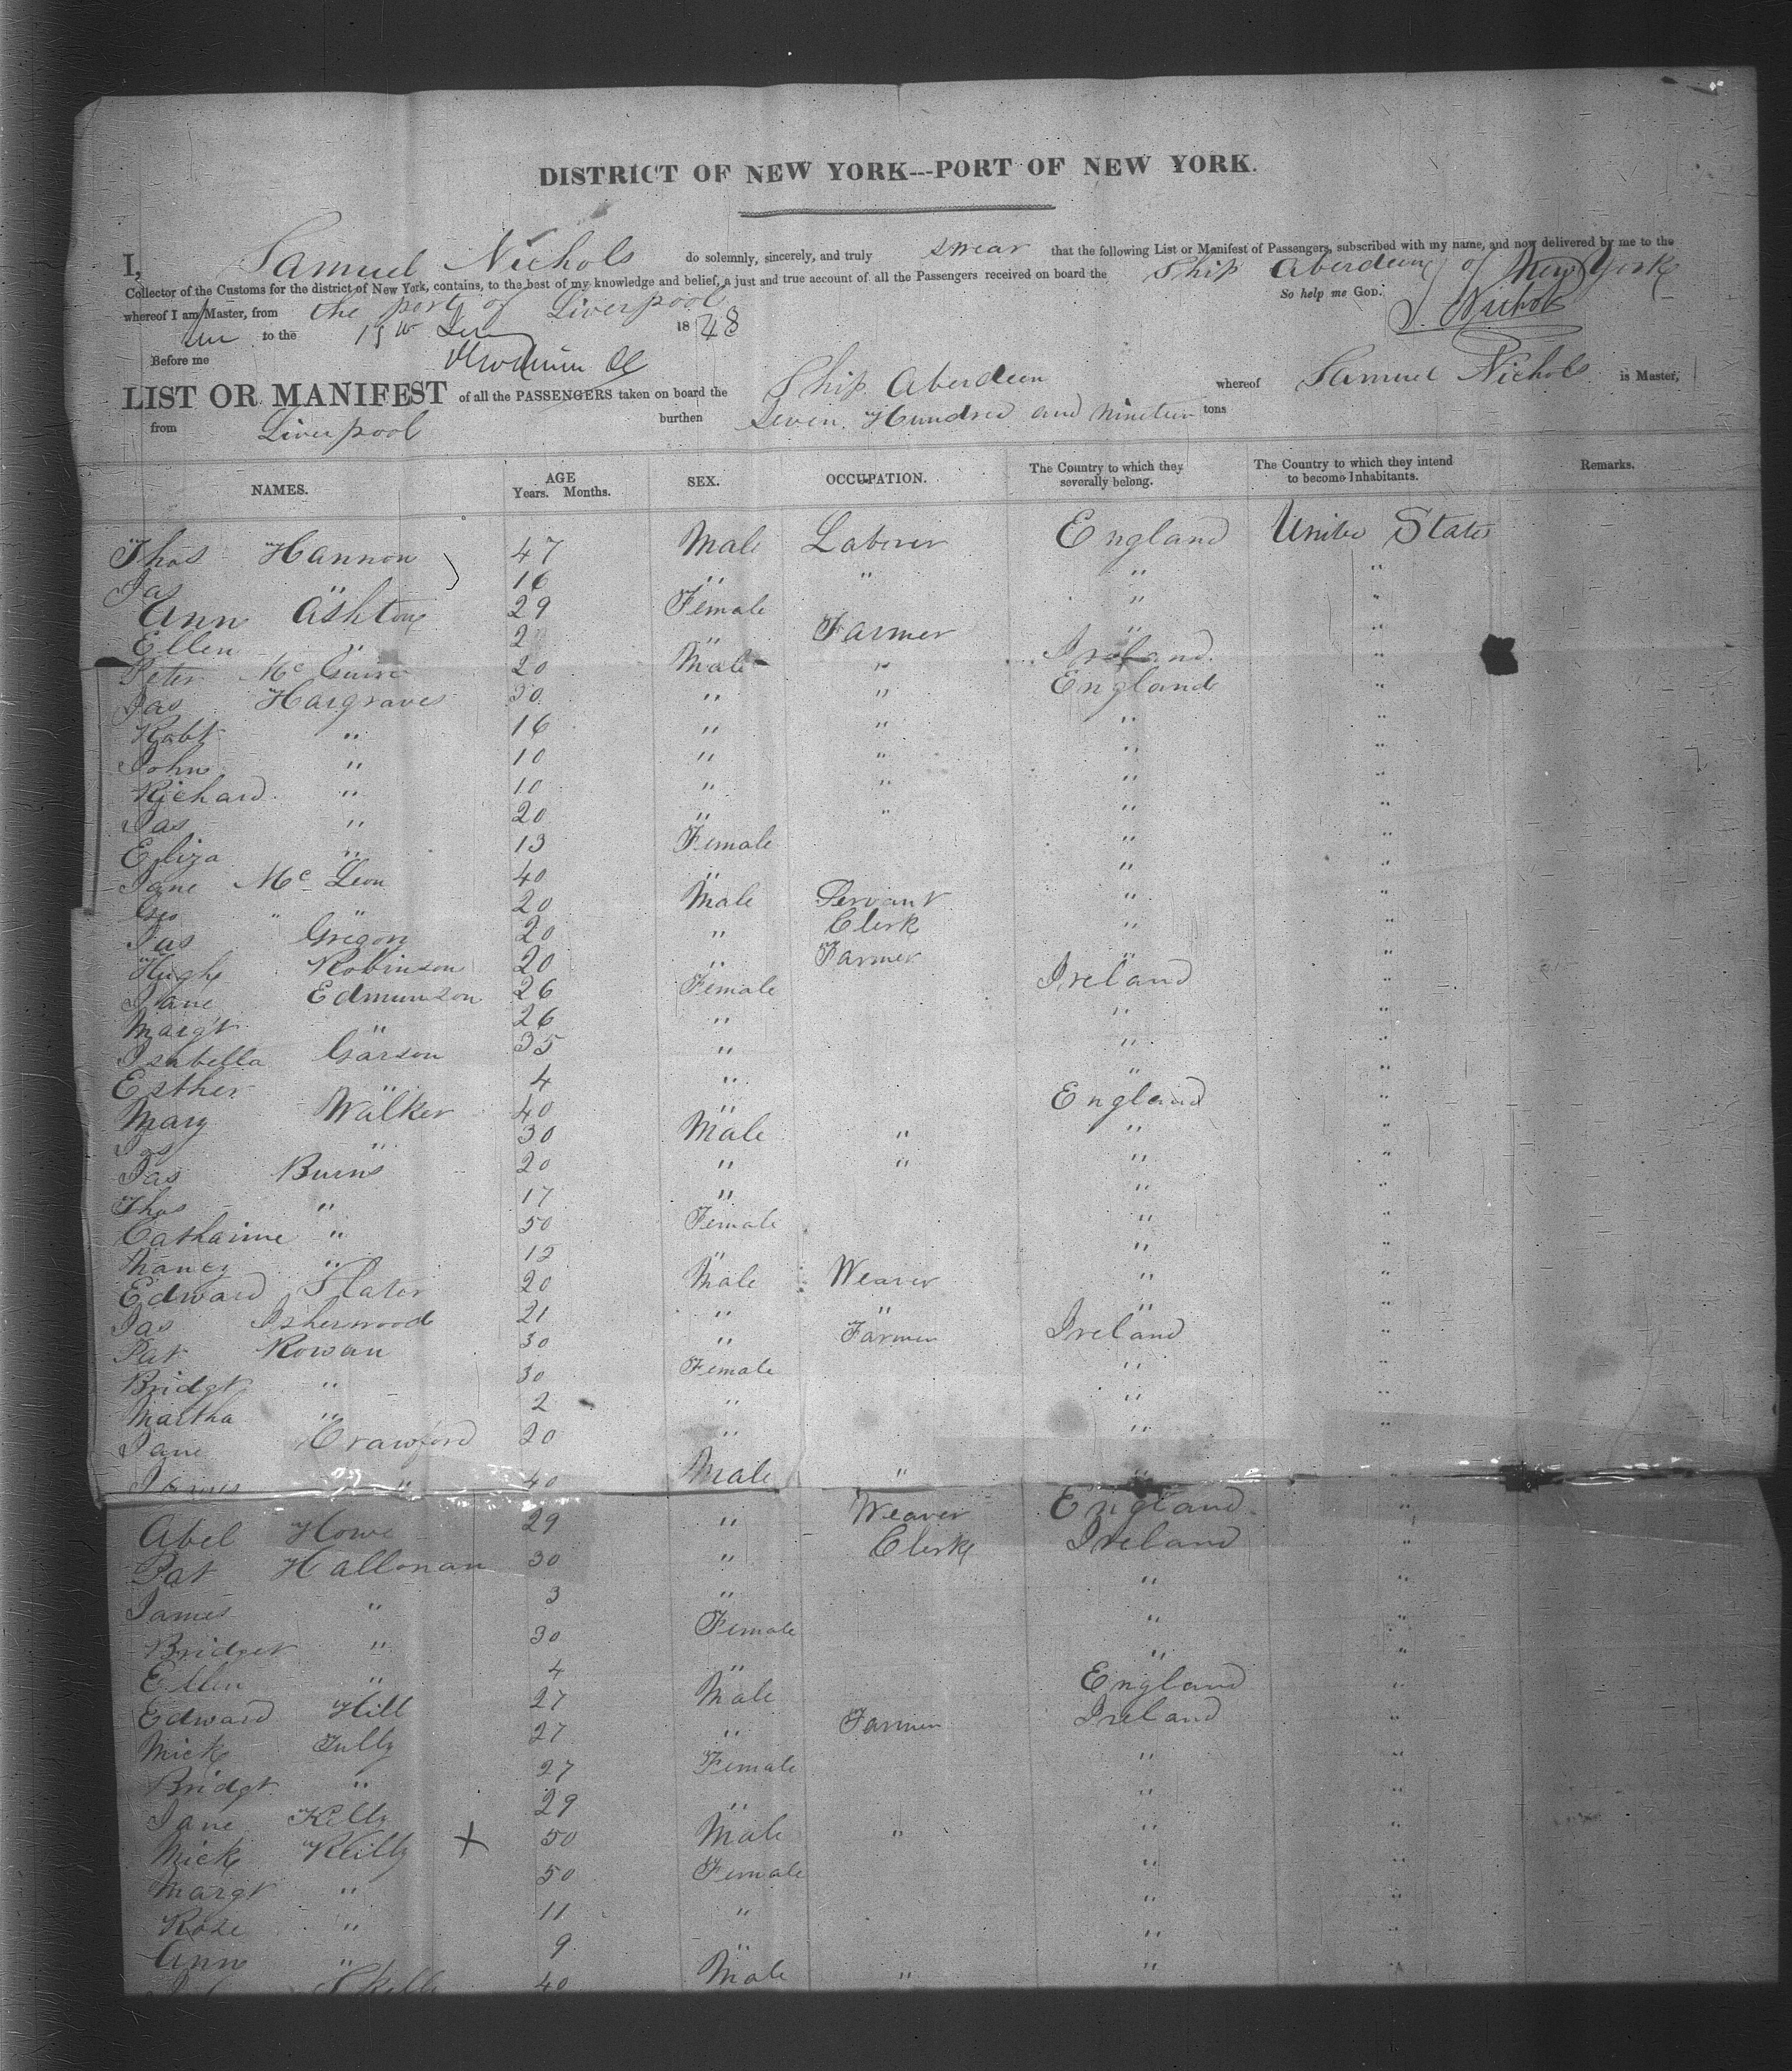 DISTRICT OF NEW YORK---PORT OF NEW YORK.
I, Samuel Nichols do solemnly, sincerely, and truly swear that the following List or Manifest of Passengers, subscribed with my name, and now delivered by me to the
Collector of the Customs for the district of New York, contains, to the best of my knowledge and belief, a just and true account of all the Passengers received on board the Ship Aberdeen of New York
whereof I am Master, from the port of Liverpool So help me GOD.
to the 15th 1848 S. Nichols
Before me
LIST OR MANIFEST of all the PASSENGERS taken on board the Ship Aberdeen whereof Samuel Nichols is Master,
from Liverpool burthen Seven Hundred and nineteen tons
NAMES. AGE Years. Months. SEX. OCCUPATION. The Country to which they severally belong. The Country to which they intend to become Inhabitants. Remarks.
Thos Hannon 47 Male Laborer England United States
Jas " 16 " " " "
Ann Ashton 29 Female " "
Ellen " 2 " Farmer " "
Peter McGuire 20 Male " Ireland "
Jas Hargraves 30 " " England "
Robt " 16 " " " "
John " 10 " " " "
Richard " 10 " " " "
Jas " 20 " " " "
Eliza " 13 Female " "
Jane Mc Leon 40 " " "
Geo " " 20 Male Servant " "
Jas Gregory 20 " Clerk " "
Hugh Robinson 20 " Farmer " "
Jane Edmunson 26 Female Ireland "
Margt " 26 " " "
Isabella Garson 35 " " "
Esther " 4 " " "
Mary Walker 40 " England "
Jas " 30 Male " " "
Jas Burns 20 " " " "
Thos " 17 " " "
Catharine " 50 Female " "
Nancy " 12 " " "
Edward Slater 20 Male Weaver " "
Jas Isherwood 21 " " " "
Pat Rowan 30 " Farmer Ireland "
Bridgt " 30 Female " "
Martha " 2 " " "
Jane Crawford 20 " " "
James " 40 Male " " "
Abel Howe 29 " Weaver England "
Pat Hallonan 30 " Clerk Ireland "
James " 3 " " "
Bridget " 30 Female " "
Ellen " 4 " " "
Edward Hill 27 Male England "
Mick Tully 27 " Farmer Ireland "
Bridgt " 27 Female " "
Jane Kelly 29 " " "
Mick Reilly X 50 Male " " "
Margt " 50 Female " "
Rose " 11 " " "
Ann " 9 " " "
Skelly 40 Male " " "